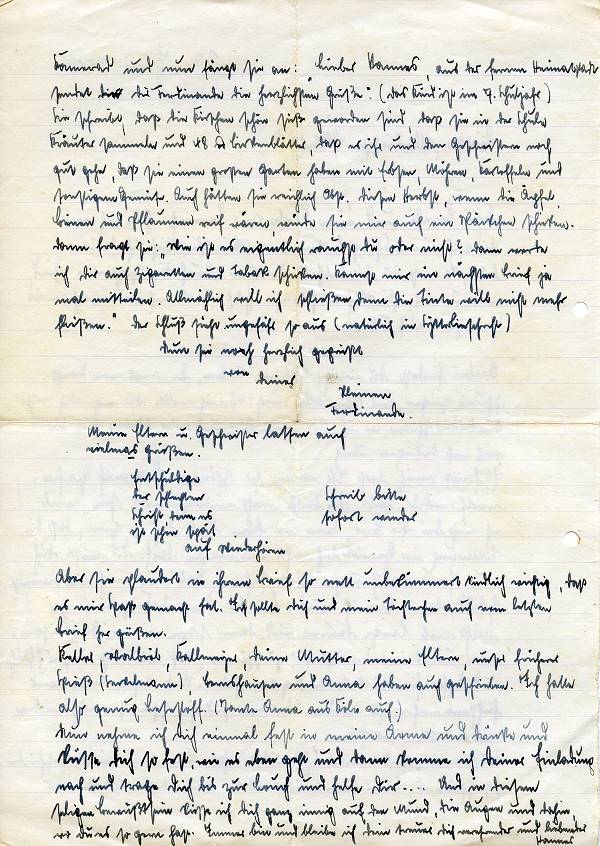 Kamerad und nun fängt sie an: „Lieber Hannes, aus der fernen Heimatstadt
sendet dir die Ferdinande die herzlichsten Grüße“. (das Kind ist im 7. Schuljahr)
Sie schreibt, daß die Kirschen schön süß geworden sind, daß sie in der Schule
Kräuter sammeln und 48 ℔ Birkenblätter, daß es ihr und den Geschwistern noch
gut gehe, daß sie einen großen Garten haben mit Erbsen, Möhren, Kartoffeln und
sonstigem Gemüse. Auch hätten sie reichlich Obst. Diesen Herbst, wenn die Äpfel
Birnen und Pflaumen reif wären, würde sie mir auch ein Päckchen schicken.
Dann fragt sie: „Wie ist es eigentlich rauchst du oder nicht? Dann werde
ich Dir auch Zigaretten und Tabak schicken. Kannst mir im nächsten Brief ja
mal mitteilen. Allmählich will ich schließen denn die Tinte will nicht mehr
fließen.“ Der Schluß sieht ungefähr so aus (natürlich in Sütterlinschrift)
Nun sei noch herzlich gegrüßt
von
Deiner
kleinen
Ferdinande.
Meine Eltern u. Geschwister lassen auch
vielmals grüßen.
Entschuldige
der schlechten
Schrift denn es
ist schon spät
Schreib bitte
sofort wieder
auf Wiederhören
Aber sie plaudert in ihrem Brief so nett unbekümmert kindlich richtig, daß
es mir Spaß gemacht hat. Ich sollte Dich und mein Töchterchen auch vom letzten
Brief her grüßen.
Kallmeyer, Deine Mutter, meine Eltern, unser früherer
Spieß (Bertelmann), Bernshausen und Anna haben auch geschrieben. Ich hatte
also genug Lesestoff. (Tante Anna aus Köln auch.)
Nun nehme ich Dich einmal fest in meine Arme und drücke und
küsse Dich so fest, wie es eben geht und dann komme ich Deiner Einladung
nach und trage Dich bis zur Couch und helfe Dir.... Und in diesem
seligen Bewußtsein küsse ich Dich ganz innig auf den Mund, die Augen und dahin,
wo Du es so gern hast. Immer bin und bleibe ich Dein treuer Dich verehrender und liebender
Hannes